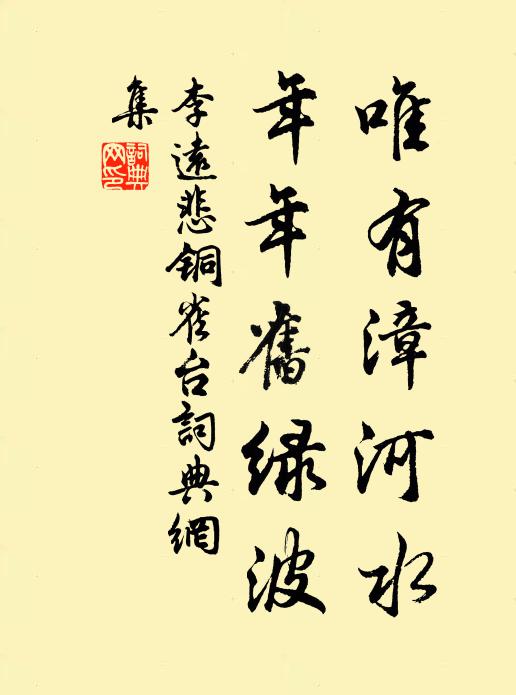 唯有漳河水
年年舊绿波
李遠悲铜雀台詞典網
集
詞典網印